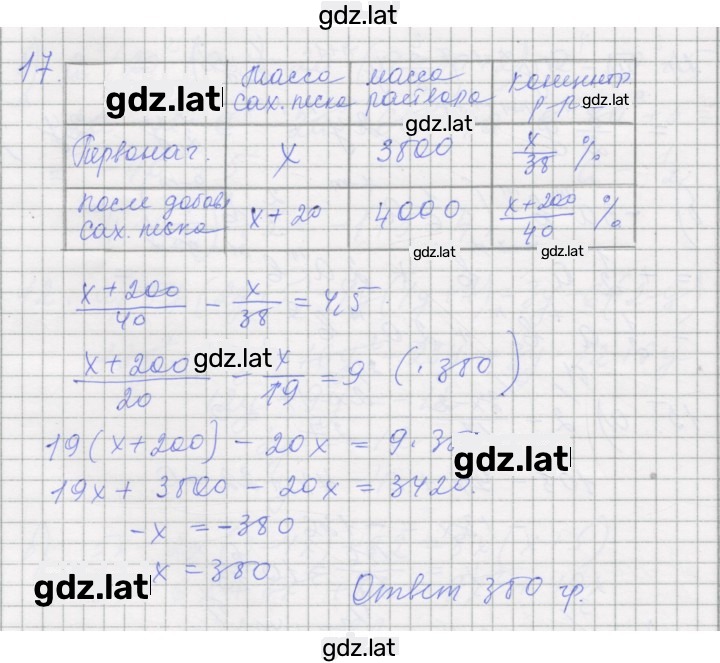 gdz.lat
17.
Масса сах. песка | масса раствора | концентр р-ра
gdz.lat
gdz.lat
gdz.lat
Первонач. | x | 3800 | x/38 %
после добав. сах. песка | x + 20 | 4000 | x+200/40 %
gdz.lat
gdz.lat
x+200/40 - x/38 = 4,5
gdz.lat
x+200/20 - x/19 = 9 (·380)
19(x+200) - 20x = 9·3
gdz.lat
19x + 3800 - 20x = 3420.
-x = -380
x = 380
gdz.lat
Ответ 380 гр.
gdz.lat